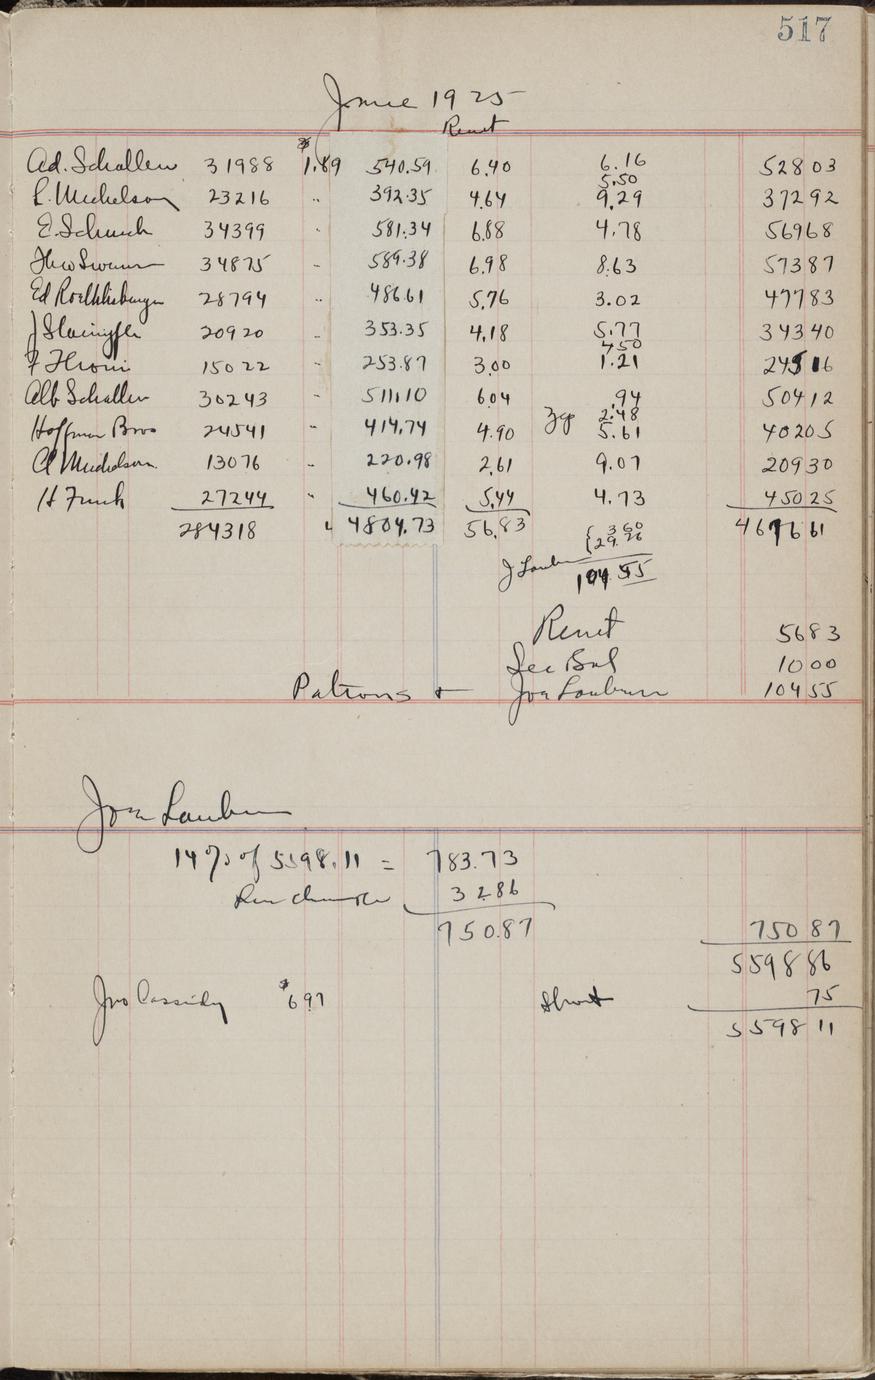 517
June 1925
Renet
Ad. Schallen 31988 $1.69 540.59 6.40 6.16 528 03
5.50
L. Michelson 23216 " 392.35 4.64 9.29 372 92
E. Schuich 34399 " 581.34 6.88 4.78 569 68
Theo Swann 34875 " 589.38 6.98 8.63 573 87
Ed 28794 " 486.61 5.76 3.02 477 83
J 20920 " 353.35 4.18 5.77 343 40
4.50
F Thoni 15022 " 253.87 3.00 1.21 245 16
Alb Schallen 30243 " 511.10 6.04 .94 504 12
2.48
Hoffman Bros 24541 " 414.74 4.90 5.61 402 05
A Michelson 13076 " 220.98 2.61 9.07 209 30
H Funk 27244 " 460.42 5.44 4.73 450 25
284318 " 4804.73 56.83 3 60 4676 61
29.26
J Lauber 104 55
Renet 56 83
See Bal 10 00
Patrons + Joe Lauber 104 55
Joe Lauber
14% of 5598.11 = 783.73
32 86
750.87 750 87
5598 86
Jno Cassidy $697 Short 75
5598 11